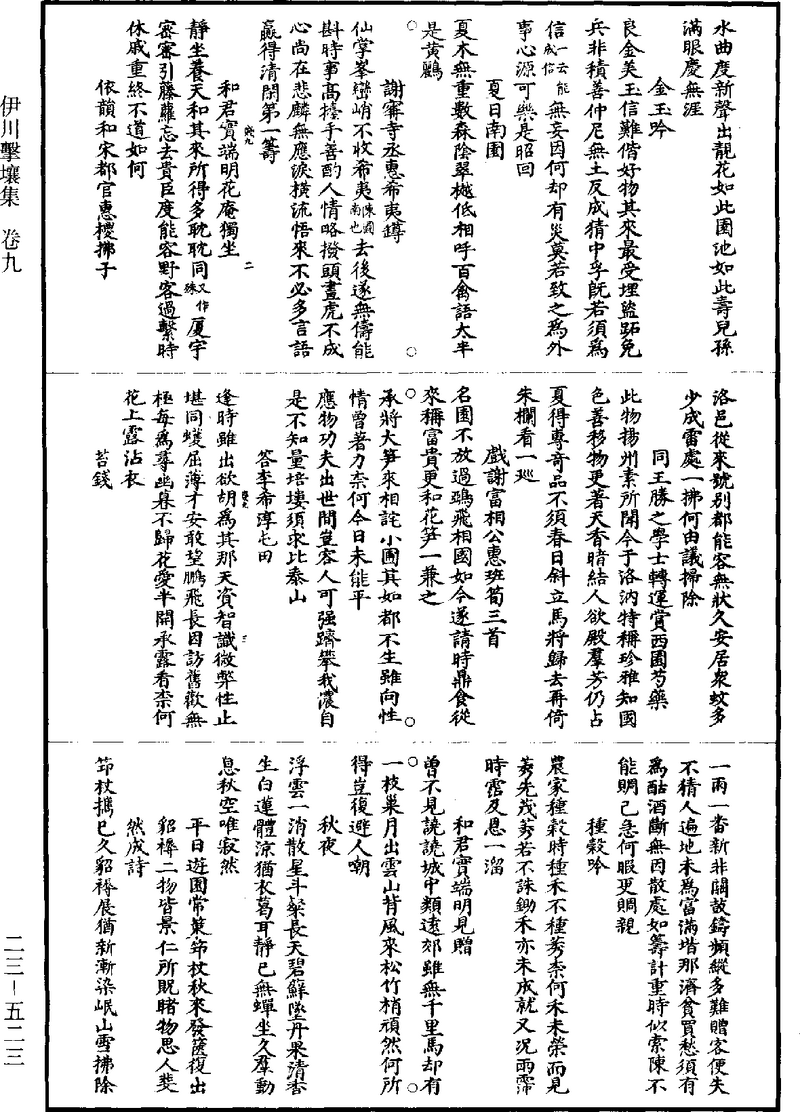 水曲度新聲出靚花如此園池如此壽兒孫
滿眼慶無涯
金玉吟
良金美玉信難偕好物其來最受埋盜跖免
兵非積善仲尼無土反成猜中孚旣若須爲
信一云能成信無妄因何却有災莫若致之爲外
事心源可樂是昭回
夏日南園
夏木無重數森陰翠樾低相呼百禽語太半
是黃鸝
○
謝寗寺丞惠希夷罇
仙掌峯巒峭不收希夷陳圖南也去後遂無儔能
斟時事高擡手善酌人情略撥頭畫虎不成
心尚在悲麟無應淚橫流悟來不必多言語
贏得清閑第一籌
和君實端明花庵獨坐
靜坐養天和其來所得多耽耽同又作殊厦宇
密密引藤蘿忘去貴臣度能容野客過繫時
休戚重終不道如何
依韻和宋都官惠椶拂子
洛邑從來號别都能容無狀久安居衆蚊多
少成雷處一拂何由議掃除
同王勝之學士轉運賞西園芍藥
此物揚州素所聞今于洛汭特稱珍雅知國
色善移物更著天香暗結人欲殿羣芳仍占
夏得專奇品不須春日斜立馬將歸去再倚
朱欄看一廵
戲謝富相公惠班筍三首
名園不放過鵶飛相國如今遂請時鼎食從
來稱富貴更和花笋一兼之
○
承將大笋來相詫小圃其如都不生雖向性
情曾著力奈何今日未能平
應物功夫出世間豈容人可强躋攀我儂自
是不知量培塿須求比泰山
答李希淳屯田
逢時雖出欲胡爲其那天資智識微弊性止
堪同蠖屈薄才安敢望鵬飛長因訪舊歡無
極每爲尋幽暮不歸花愛半開承露看柰何
花上露沾衣
苔錢
一雨一番新非關鼓鑄頻縱多難贈客便失
不猜人遍地未爲富滿堦那濟貧買愁須有
爲酤酒斷無因散處如籌計重時似索陳不
能賙己急何暇更賙親
種穀吟
農家種穀時種禾不種莠奈何禾未榮而見
莠先茂莠若不誅鋤禾亦未成就又况雨霈
時霑及恩一溜
和君實端明見贈
曾不見譊譊城中類遠郊雖無千里馬却有
一枝巢月出雲山背風來松竹梢頑然何所
得豈復避人嘲
秋夜
浮雲一消散星斗粲長天碧蘚墜丹果清香
生白蓮體涼猶衣葛耳靜已無蟬坐久羣動
息秋空唯寂然
平日遊園常策筇杖秋來發篋復出
貂褥二物皆景仁所貺睹物思人斐
然成詩
筇杖攜已久貂褥展猶新漸染岷山雪拂除
伊川擊壤集　卷九
二三—五二三